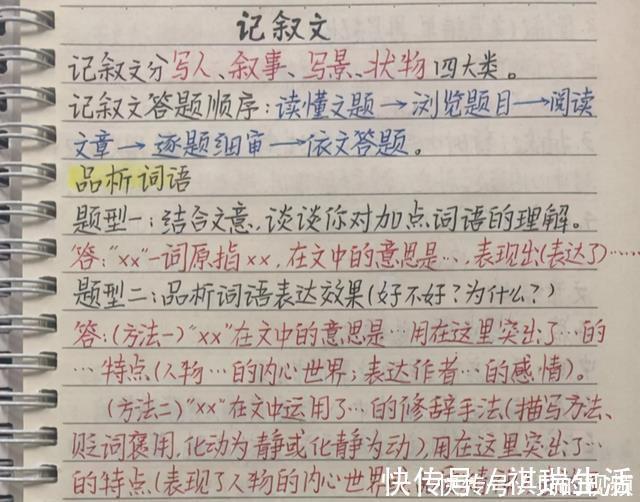 记叙文
记叙文分写人、叙事、写景、状物四大类。
记叙文答题顺序:读懂文题→浏览题目→阅读
文章→逐题细审→依文答题。
品析词语
题型一:结合文意,谈谈你对加点词语的理解。
答:"××"一词原指××,在文中的意思是…,表现出(表达了)……
题型二:品析词语表达效果(好不好?为什么?)
答:(方法一)"××"在文中的意思是…用在这里突出了…的
…特点(人物…的内心世界;表达作者…的感情)。
(方法二)"××"在文中运用了…的修辞手法(描写方法、
贬词褒用,化动为静或化静为动),用在这里突出了…
的特点(表现了人物的内心世界
快传号/祺瑞生活